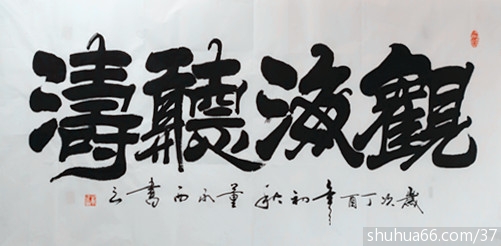 觀海聽濤
歲次丁酉年初秋董永西書之
shuhua66.com/37